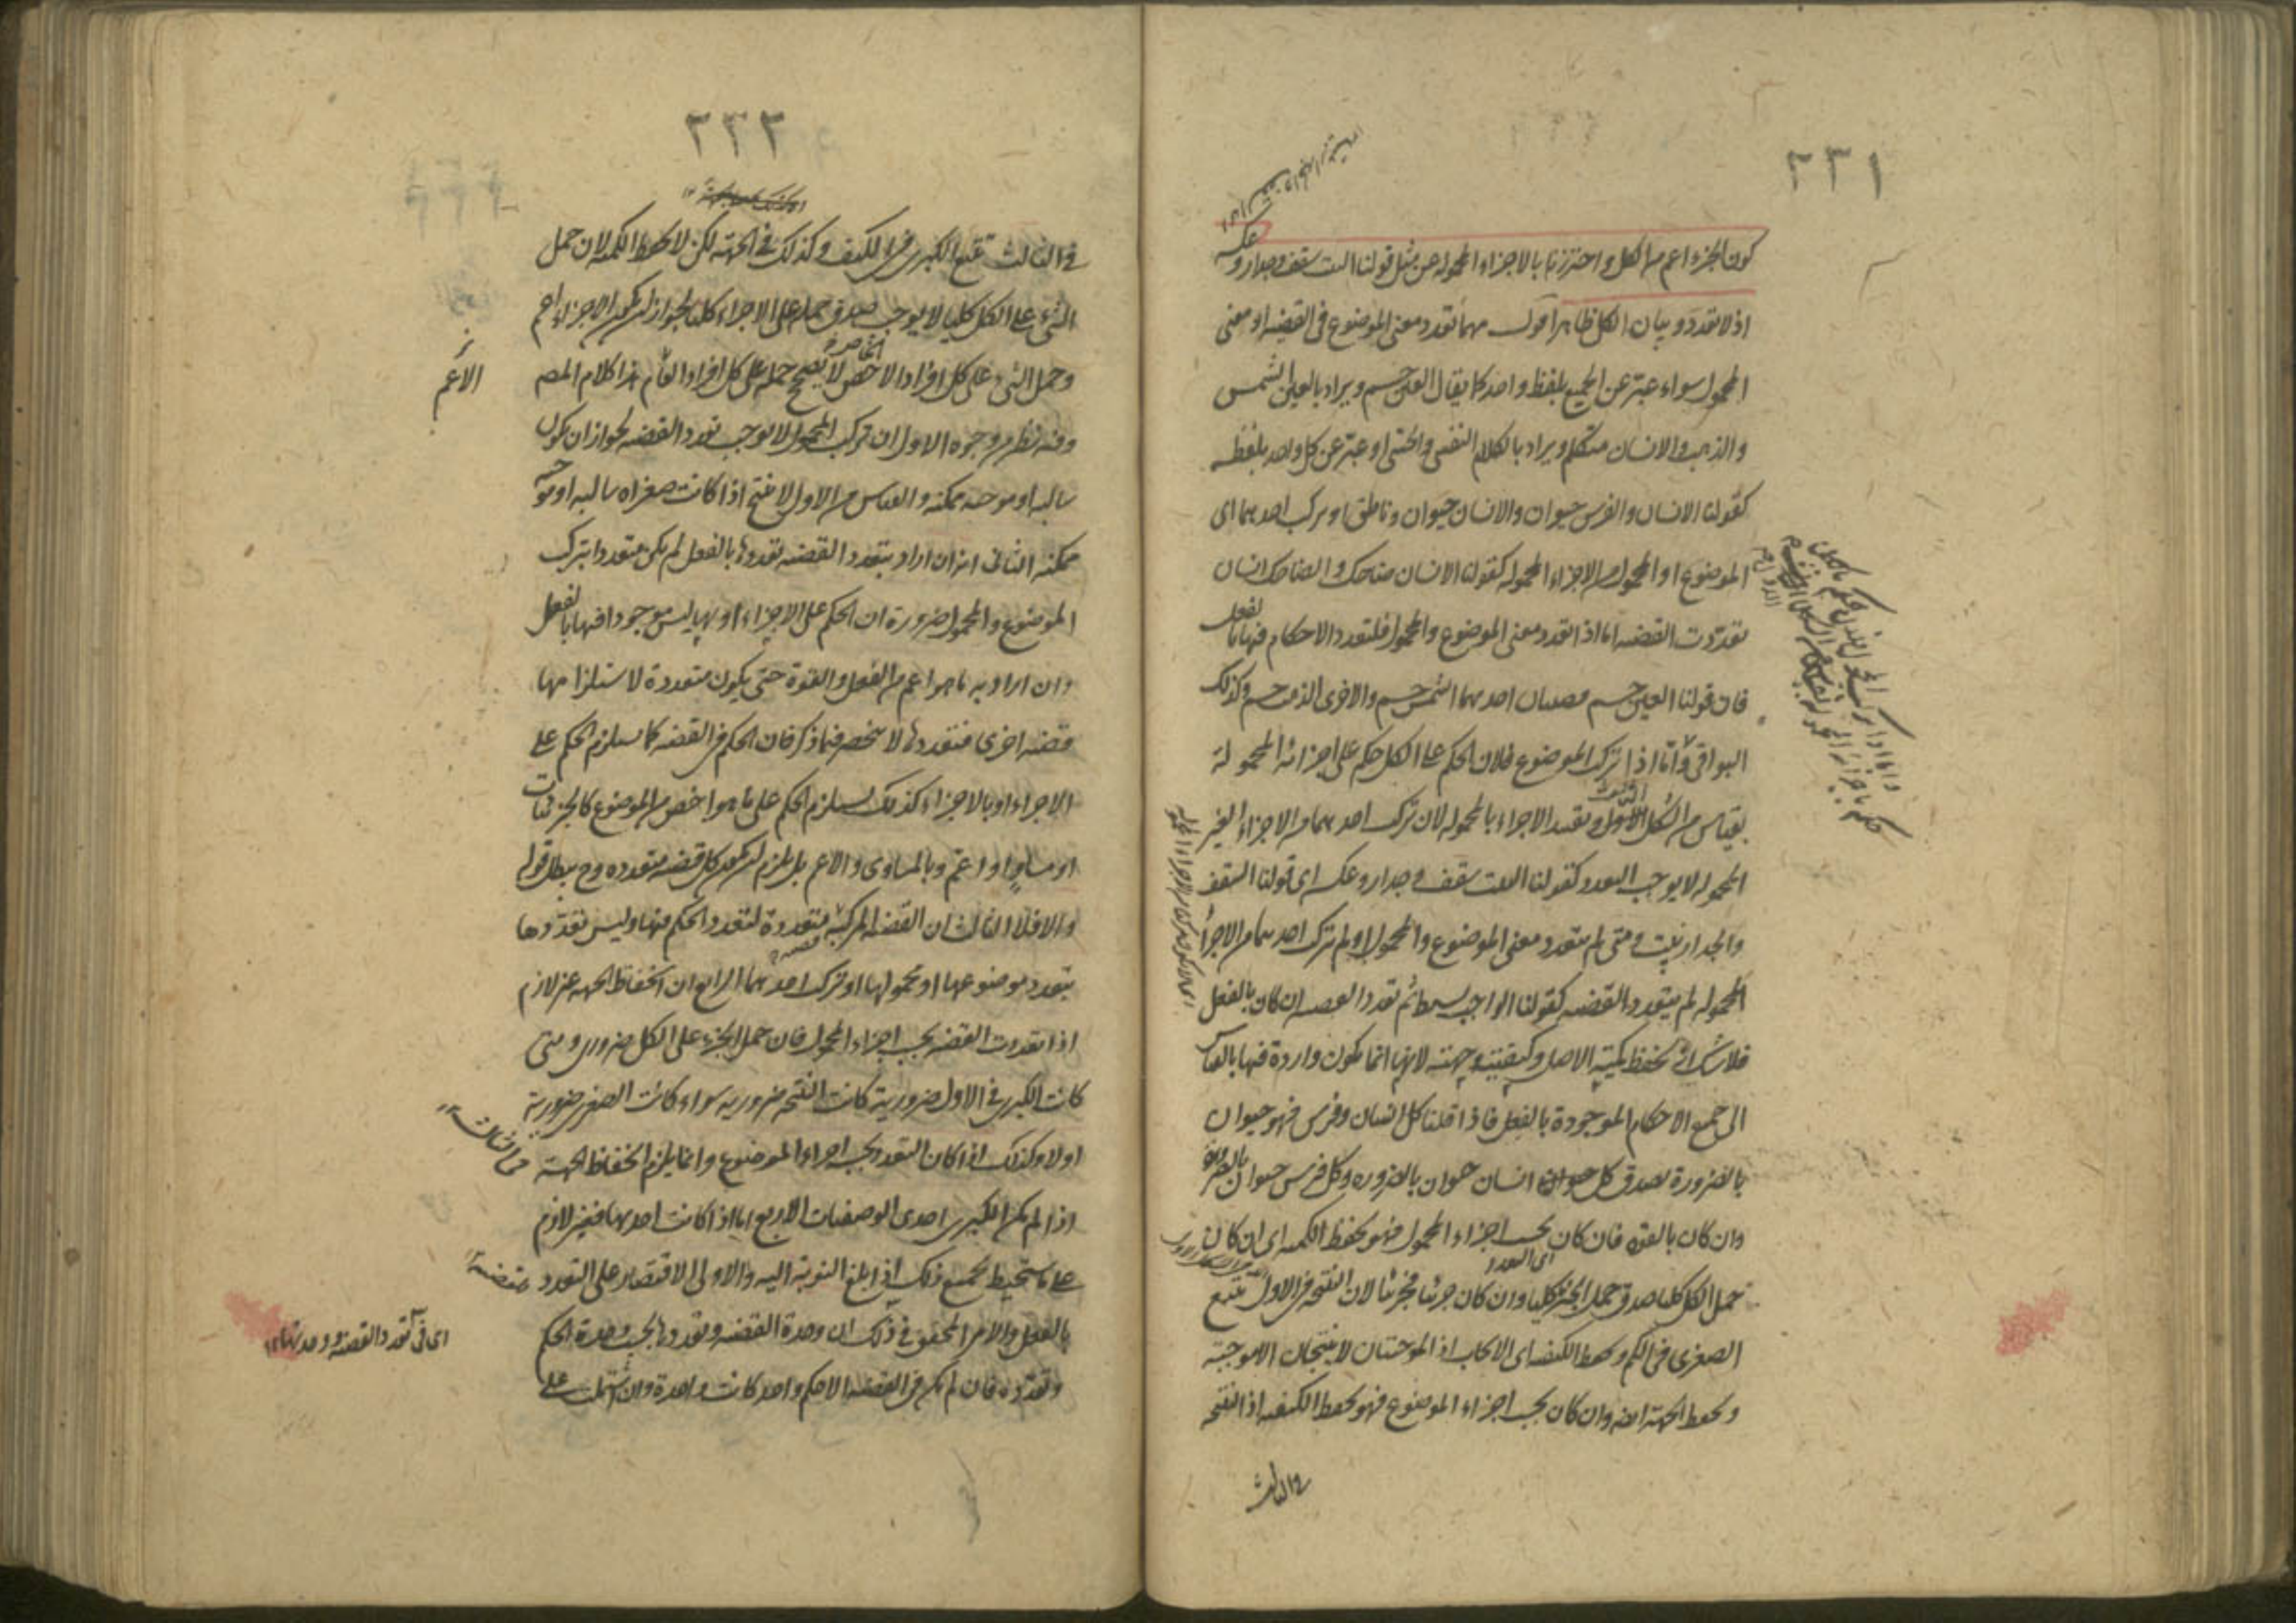 ٢٣١
كون الجزء اعم من الكل و احترزنا بالاجزاء المحمولة عن مثل قولنا البيت سقف وجدار و عكسه
اذ لا تعدد و بيان الكل ظاهر اقول مهما تعدد معنى الموضوع فى القضية او معنى
المحمول سواء عبر عن الجميع بلفظ واحد كما يقال العين جسم و يراد بالعين الشمس
و الذهب و الانسان متكلم و يراد بالكلام النفسى و الحسى او عبر عن كل واحد بلفظه
كقولنا الانسان و الفرس حيوان و الانسان حيوان و ناطق او تركب احدهما اى
الموضوع او المحمول من الاجزاء المحمولة كقولنا الانسان ضاحك و الضاحك انسان
تعددت القضية اما اذا تعدد معنى الموضوع و المحمول فلتعدد الاحكام فيها بالفعل
فان قولنا العين جسم قضيتان احدهما الشمس جسم و الاخرى الذهب جسم و كذلك
البواقى و اما اذا تركب الموضوع فلان الحكم على الكل حكم على اجزائه المحمولة
بقياس من الشكل الثالث و تقييد الاجزاء بالمحمولة لان تركب احدهما من الاجزاء الغير
المحمولة لا يوجب التعدد كقولنا البيت سقف و جدار و عكسه اى قولنا السقف
و الجدار بيت و متى لم يتعدد معنى الموضوع و المحمول او لم تركب احدهما من الاجزاء
المحمولة لم يتعدد القضية كقولنا الواجب بسيط ثم تعدد القضية ان كان بالفعل
فلا شك انه يحفظ كمية الاصل و كيفيته و جهته لانها انما يكون واردة فيها بالقياس
الى جميع الاحكام الموجودة بالفعل فاذا قلنا كل انسان و فرس فهو حيوان
بالضرورة يصدق كل انسان حيوان بالضرورة و كل فرس حيوان بالضرورة
و ان كان بالقوة فان كان بحسب اجزاء المحمول فهو يحفظ الكمية اى ان كان
حمل الكل كليا صدق حمل الجزء كليا و ان كان جزئيا فجزئيا لان النتيجة فى الاول تتبع
اى التعدد
الصغرى فى الكم و يحفظ الكيفية اى الايجاب اذ الموجبتان لا ينتجان الا موجبة
و يحفظ الجهة ايضا و ان كان بحسب اجزاء الموضوع فهو يحفظ الكيفية اذ النتيجة
فى الثالث
٢٣٢
فى الثالث تتبع الكبرى فى الكيف و كذلك فى الجهة لكن لا يحفظ الكمية لان حمل
الشئ على الكل كليا لا يوجب صدق حمله على الاجزاء كليا لجواز ان يكون الاجزاء اعم
و حمل الشئ على كل افراد الاخص لا يصح حمله على كل افراد العام هذا كلام المص
الاعم
و فيه نظر من وجوه الاول ان تركب المحمول لا يوجب تعدد القضية لجواز ان يكون
سالبة او موجبة ممكنة و القياس من الاول لا ينتج اذا كانت صغراه سالبة او موجبة
ممكنة الثانى انه ان اراد بتعدد القضية تعددها بالفعل لم يكن متعددا بتركب
الموضوع و المحمول ضرورة ان الحكم على الاجزاء او بها ليس موجودا فيها بالفعل
و ان اراد به ما هو اعم من الفعل و القوة حتى يكون متعددة لاستلزامها
قضية اخرى فتعددها لا ينحصر فيما ذكر فان الحكم فى القضية كما يستلزم الحكم على
الاجزاء او بالاجزاء كذلك يستلزم الحكم على ما هو اخص من الموضوع كالجزئيات
او مساو او اعم و بالمساوى و الاعم بل يلزم ان يكون كل قضية متعددة و ح يبطل قوله
و الا فلا الثالث ان القضية المركبة متعددة لتعدد الحكم فيها و ليس تعددها
بتعدد موضوعها او محمولها او تركب احدهما الرابع ان انحفاظ الجهة غير لازم
اذا تعددت القضية بحسب اجزاء المحمول فان حمل الجزء على الكل ضرورى و متى
كانت الكبرى فى الاول ضرورية كانت النتيجة ضرورية سواء كانت الصغرى ضرورية
او لا و كذلك اذا كان التعدد بحسب اجزاء الموضوع و انما يلزم انحفاظ الجهة
من الثالث
اذا لم يكن الكبرى احدى الوصفيات الاربع اما اذا كانت احديها فغير لازم
على ما ستحيط بجميع ذلك اذا بلغ النوبة اليه و الاولى الاقتصار على التعدد
بالفعل و الامر المحقق فى ذلك ان وحدة القضية و تعددها بحسب وحدة الحكم
اى فى تعدد القضية و وحدتها ١٢
و تعدده فان لم يكن فى القضية الا حكم واحد كانت واحدة و ان اشتملت على